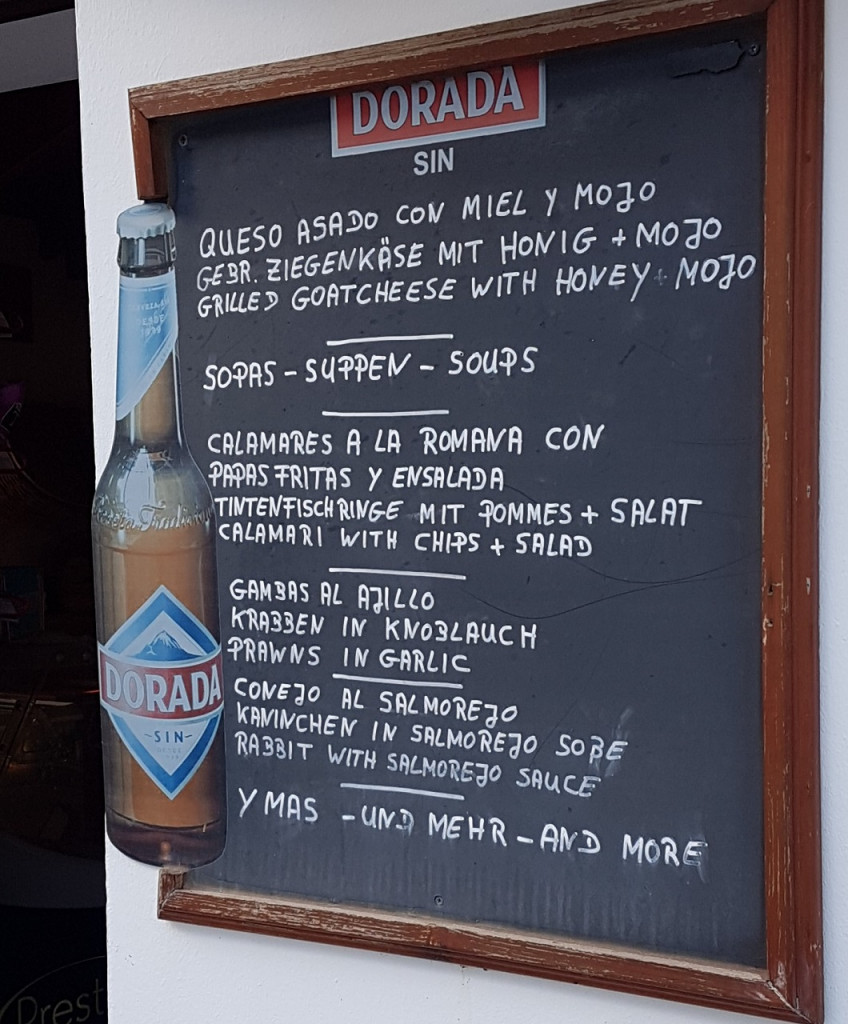 DORADA
SIN
QUESO ASADO CON MIEL Y MOJO
GEBR. ZIEGENKÄSE MIT HONIG + MOJO
GRILLED GOATCHEESE WITH HONEY + MOJO
SOPAS - SUPPEN - SOUPS
CALAMARES A LA ROMANA CON
PAPAS FRITAS Y ENSALADA
TINTENFISCHRINGE MIT POMMES + SALAT
CALAMARI WITH CHIPS + SALAD
GAMBAS AL AJILLO
KRABBEN IN KNOBLAUCH
PRAWNS IN GARLIC
CONEJO AL SALMOREJO
KANINCHEN IN SALMOREJO SOßE
RABBIT WITH SALMOREJO SAUCE
Y MAS - UND MEHR - AND MORE
DORADA
-SIN-
Prest